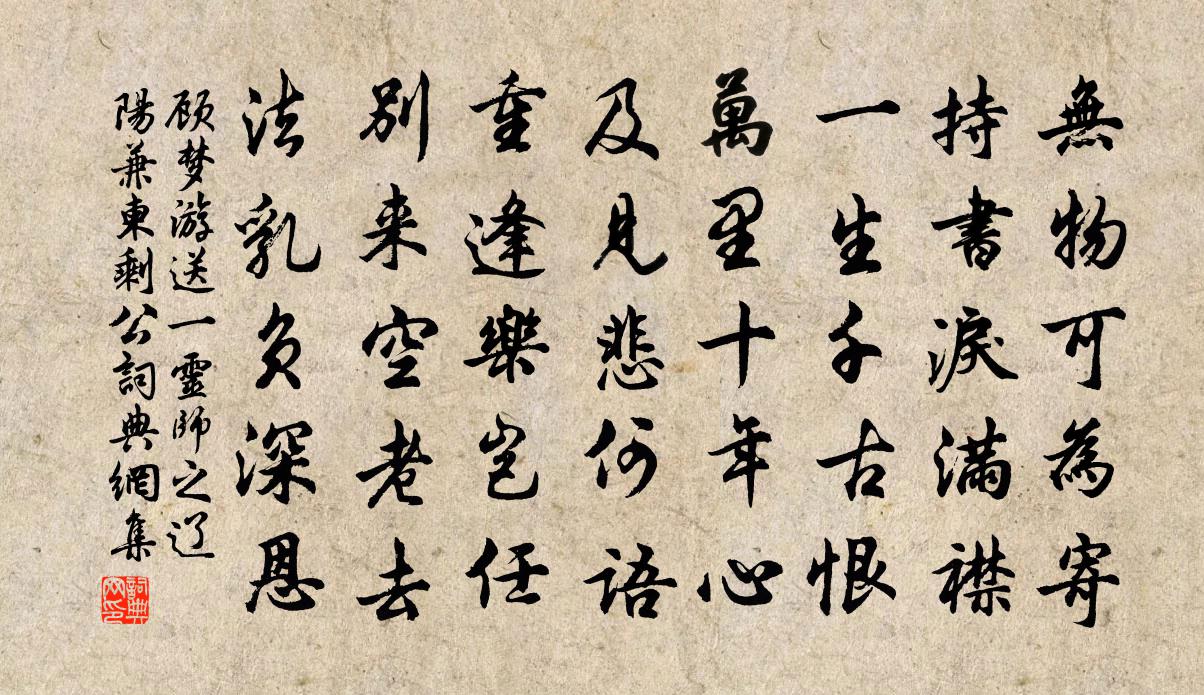 無物可為寄
持書淚滿襟
一生千古恨
萬里十年心
及見悲何語
重逢樂豈任
別来空老去
法乳負深恩
顾梦游送一靈師之辽
陽兼東剩公詞典網集
詞典
网印